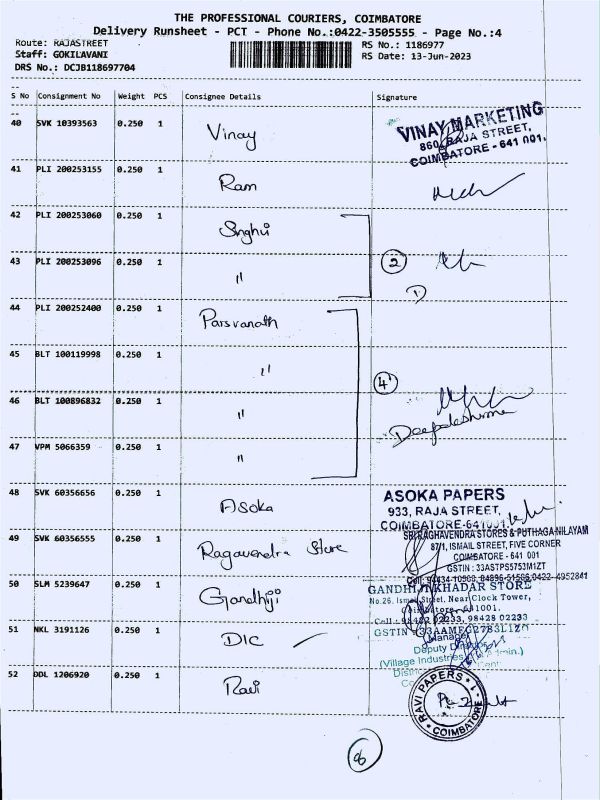 THE PROFESSIONAL COURIERS, COIMBATORE
Delivery Runsheet - PCT - Phone No.:0422-3505555 - Page No.:4
Route: RAJASTREET
Staff: GOKILAVANI
DRS No.: DCJB118697704
RS No.: 1186977
RS Date: 13-Jun-2023
S No Consignment No Weight PCS Consignee Details Signature
40 SVK 10393563 0.250 1 Vinay
VINAY MARKETING
860, RAJA STREET,
COIMBATORE - 641 001.
41 PLI 200253155 0.250 1 Ram
42 PLI 200253060 0.250 1 Singhvi
43 PLI 200253096 0.250 1 " 2
44 PLI 200252400 0.250 1 Parsvanath
45 BLT 100119998 0.250 1 "
4
46 BLT 100896832 0.250 1 "
47 VPM 5066359 0.250 1 "
48 SVK 60356656 0.250 1 Asoka
ASOKA PAPERS
933, RAJA STREET,
COIMBATORE-641001.
49 SVK 60356555 0.250 1 Ragavendra Store
SRI RAGHAVENDRA STORES & PUTHAGA NILAYAM
87/1, ISMAIL STREET, FIVE CORNER
COIMBATORE - 641 001
GSTIN : 33ASTPS5753M1ZT
50 SLM 5239647 0.250 1 Gandhiji
KHADAR STORE
Near Clock Tower,
98428 02233
GSTIN
51 NKL 3191126 0.250 1 DIC
Manager
Deputy
(Village Industries
52 DDL 1206920 0.250 1 Ravi
RAVI PAPERS
COIMBATORE